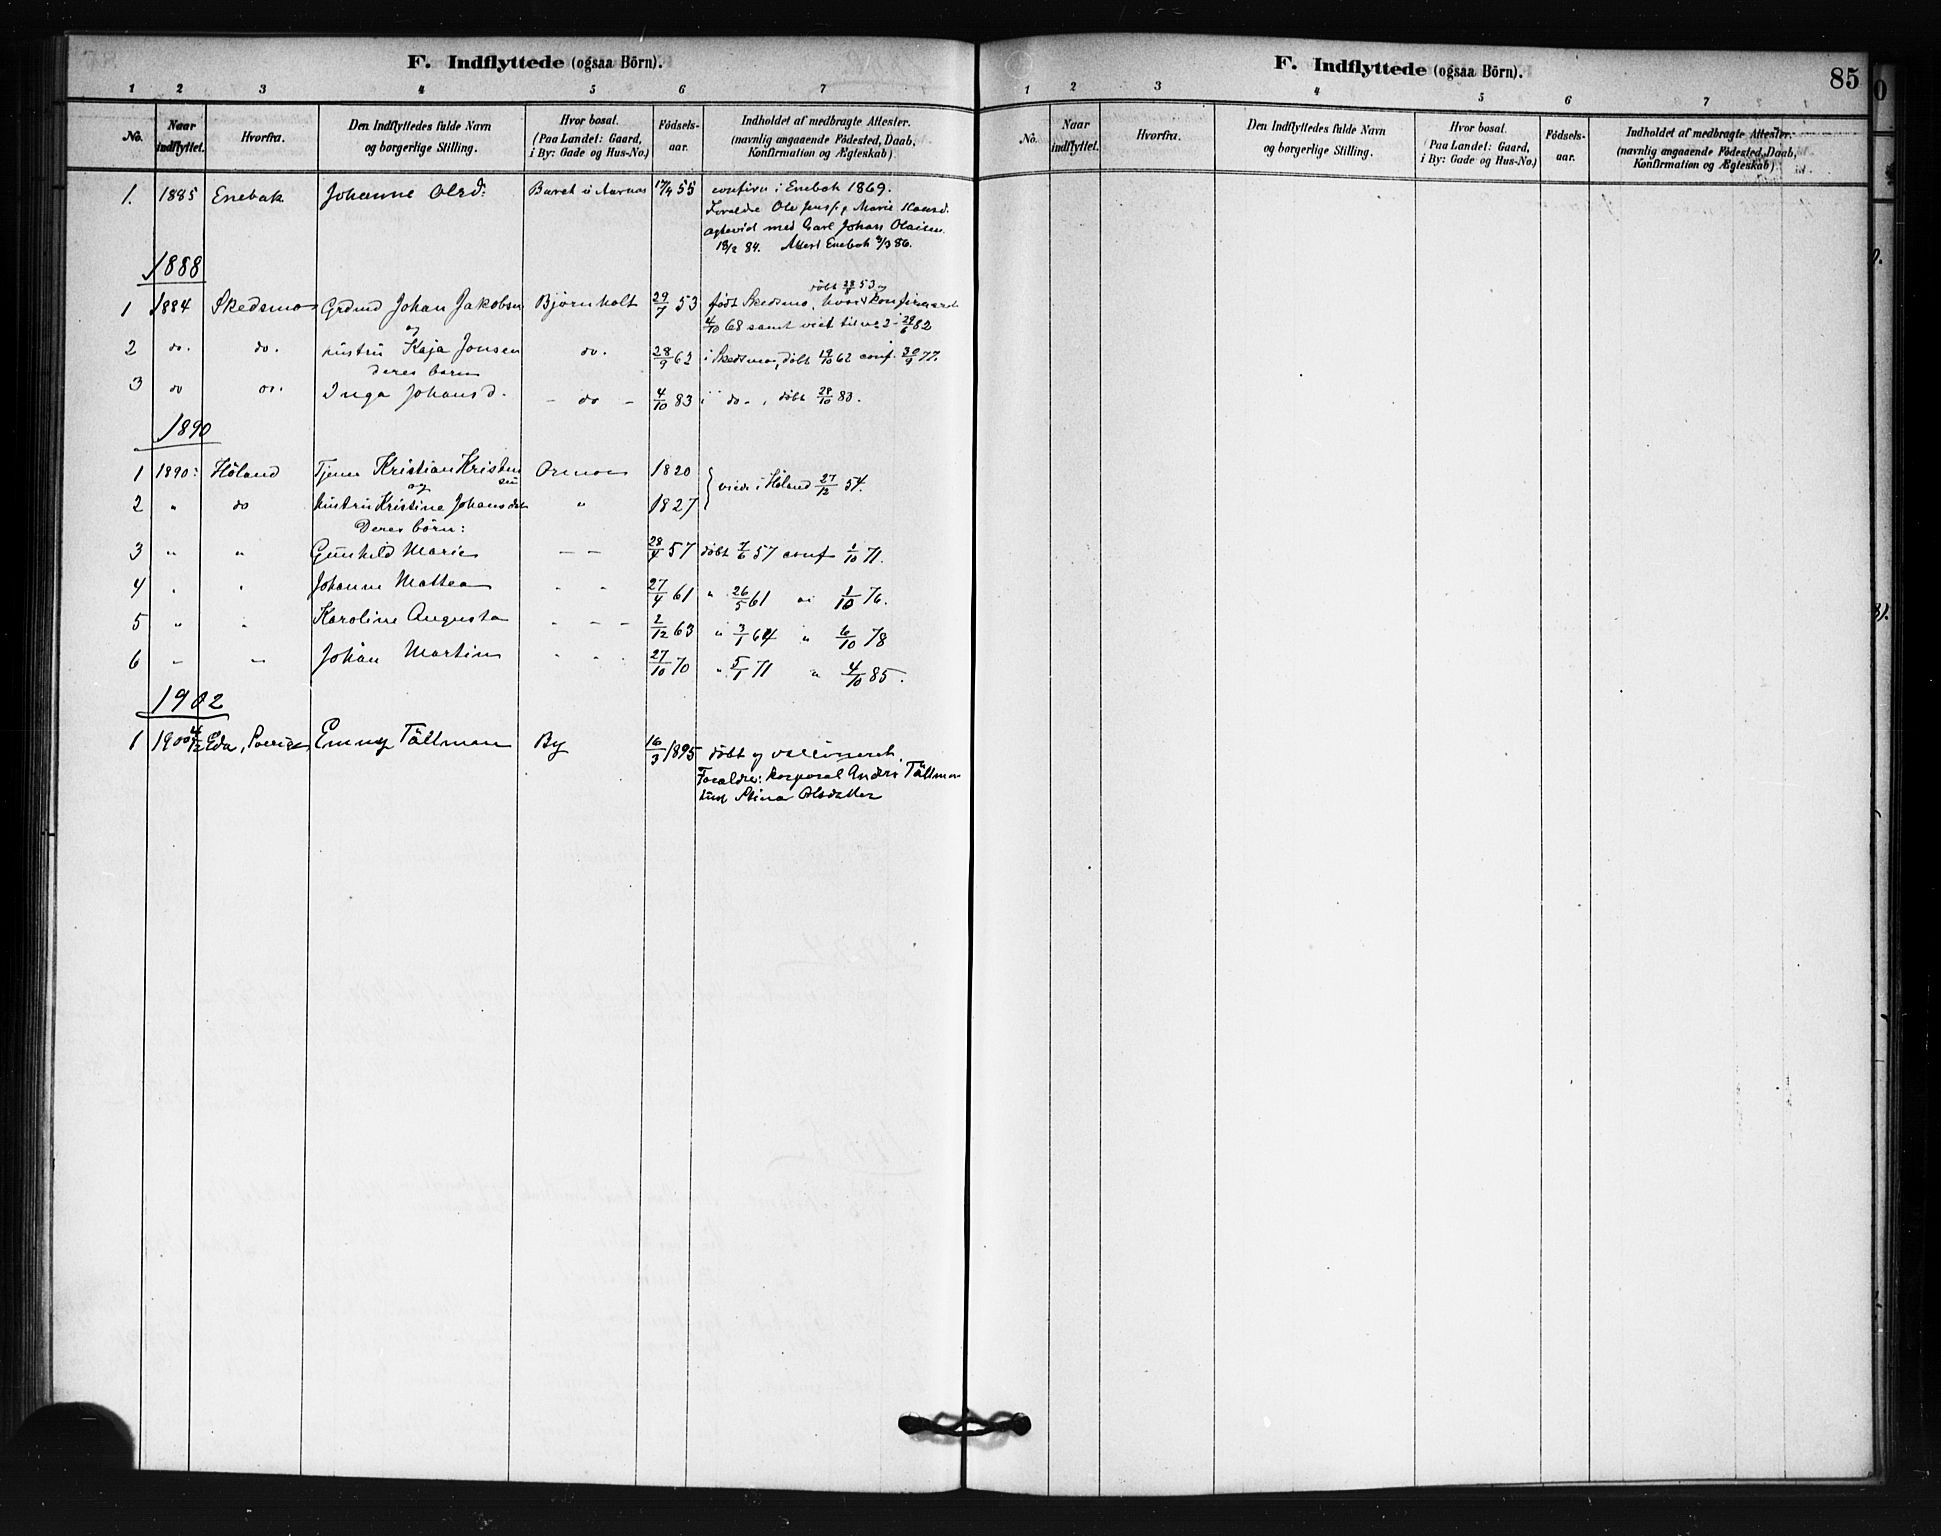 F. Indflyttede (ogsaa Börn).
1 2 3 4 5 6 7
No. Naar indflyttet. Hvorfra. Den Indflyttedes fulde Navn og borgerlige Stilling. Hvor bosat. (Paa Landet: Gaard, i By: Gade og Hus-No.) Födsels-aar. Indholdet af medbragte Attester. (navnlig angaaende Födested, Daab, Konfirmation og Ægteskab)
1. 1885 Enebak Johanne Olsd. 17/4 55 confirm i Enebak 1869.
Forældre Ole Jens. og Marie Hansd.
med Carl Johan Olaisen
18/2 84. Attest Enebak 86.
1888
døbt 28/8 53 og
1 1884 Skedsmo Grdmd Johan Jakobsen Bjørnholt 29/7 53 født Skedsmo, hvor konfirmeret
og 4/10 68 samt viet til no 2 29/6 82
2 do. do. hustru Kaja Jonsen do. 28/9 62 i Skedsmo, døbt 19/10 62 conf. 30/9 77.
deres barn
3 do do. Inga Johansd. - do - 4/10 83 i do., døbt 28/10 83.
1890
1 1890: Høland Tjener Kristian Kristen 1820
og sen viede i Høland 27/12 54.
2 " do hustru Kristine Johansdat " 1827
Deres börn:
3 " " Gunhild Marie - - 28/4 57 døbt 7/6 57 conf 1/10 71.
4 " " Johanne Mattea " " 27/4 61 " 26/5 61 " 1/10 76.
5 " " Karoline Augusta - - - 2/12 63 " 3/1 64 " 6/10 78
6 " " Johan Martin " " 27/10 70 " 5/1 71 " 4/10 85.
1902
1 1900 Eda, Sverige Emmy Tällman By 16/3 1895 døbt og vaccineret.
Forældre: korporal Anders Tällman
Stina Olsdatter
F. Indflyttede (ogsaa Börn).
85
1 2 3 4 5 6 7
No. Naar indflyttet. Hvorfra. Den Indflyttedes fulde Navn og borgerlige Stilling. Hvor bosat. (Paa Landet: Gaard, i By: Gade og Hus-No.) Födsels-aar. Indholdet af medbragte Attester. (navnlig angaaende Födested, Daab, Konfirmation og Ægteskab)